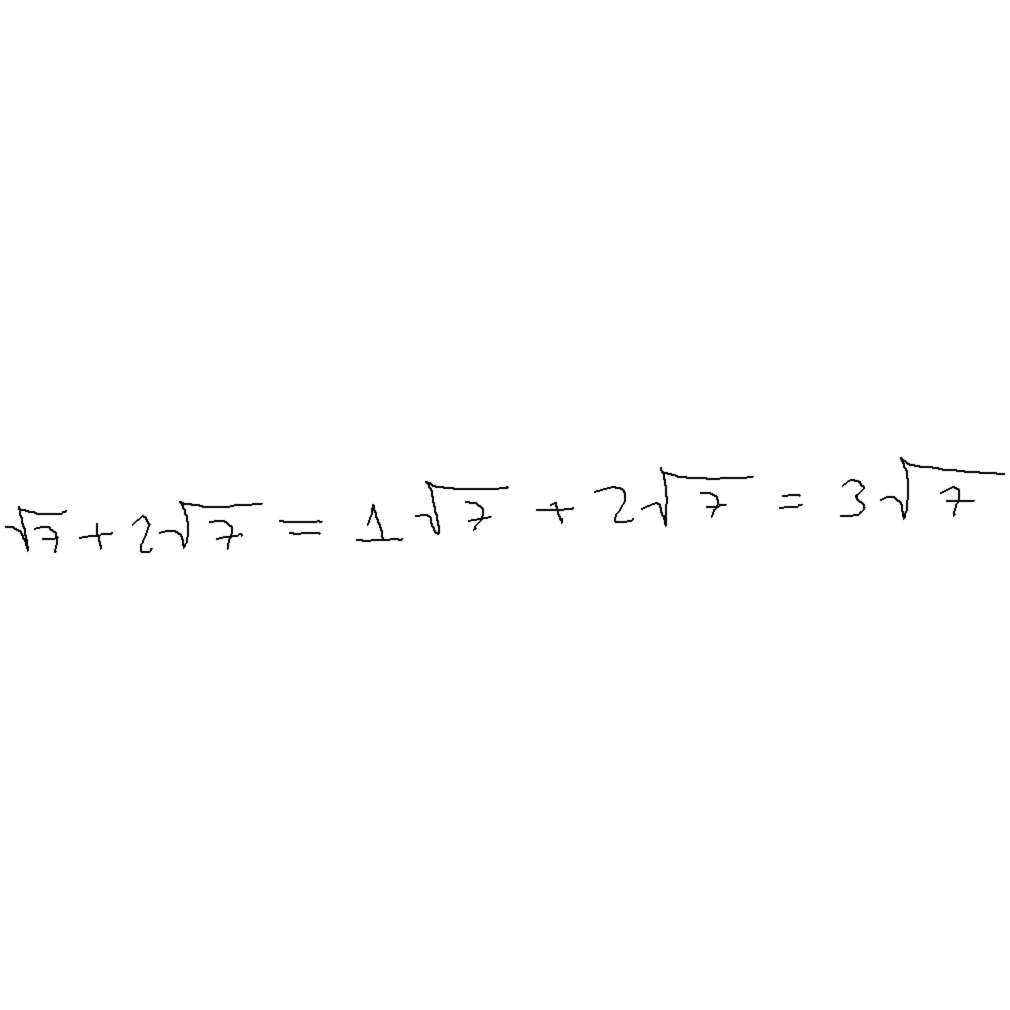 √7 + 2√7 = 1√7 + 2√7 = 3√7